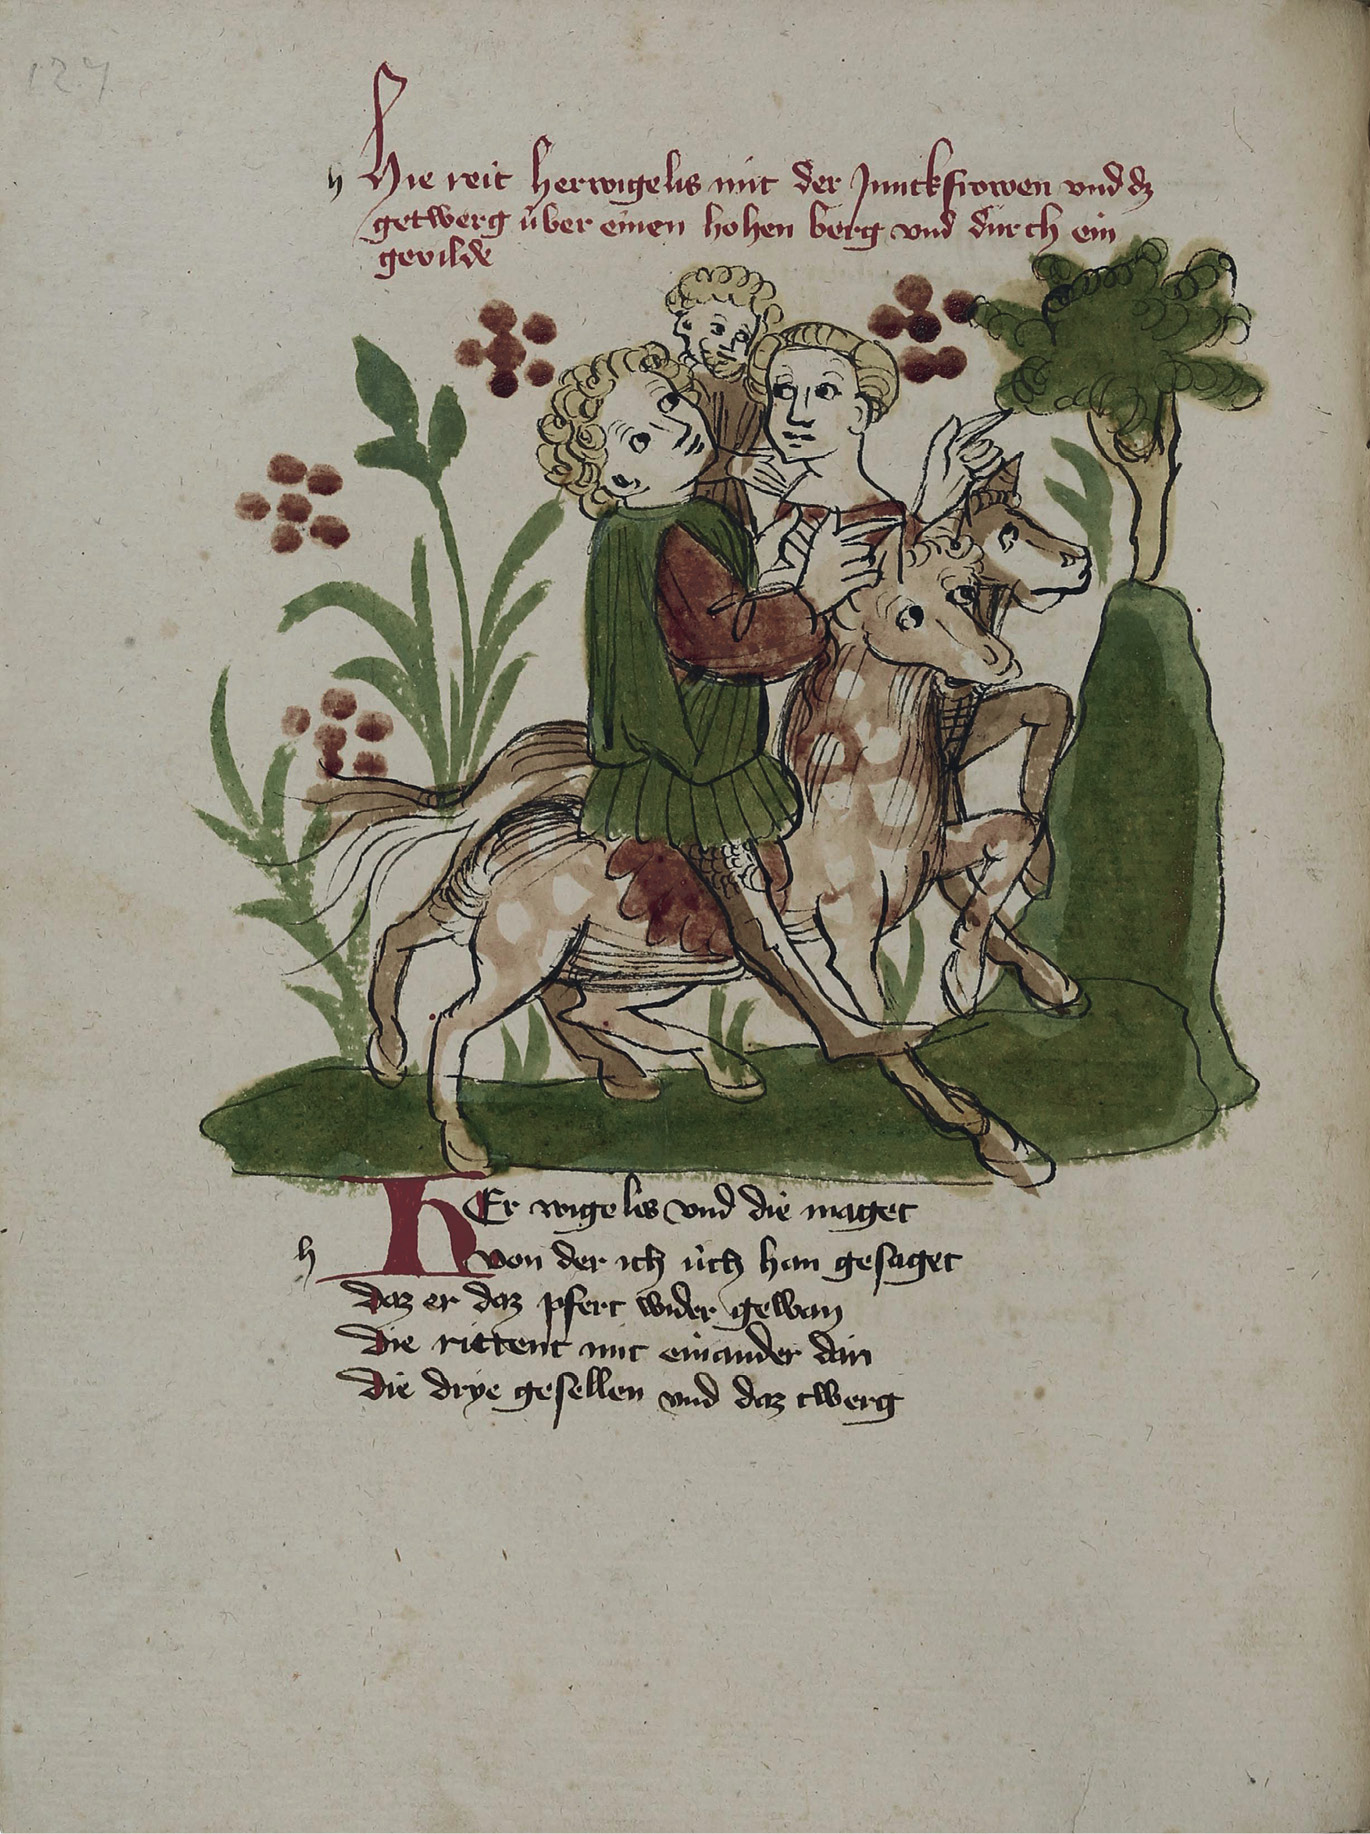 127
h Hie reit herwigelis mit der Junckfrowen vnd dz
getwerg über einen hohen berg vnd durch ein
gevilde
HEr wigelis vnd die maget
h von der ich üch han gesaget
Daz er daz pfert wider gewan
Die rittent mit einander dan
Die drye gesellen vnd daz twerg